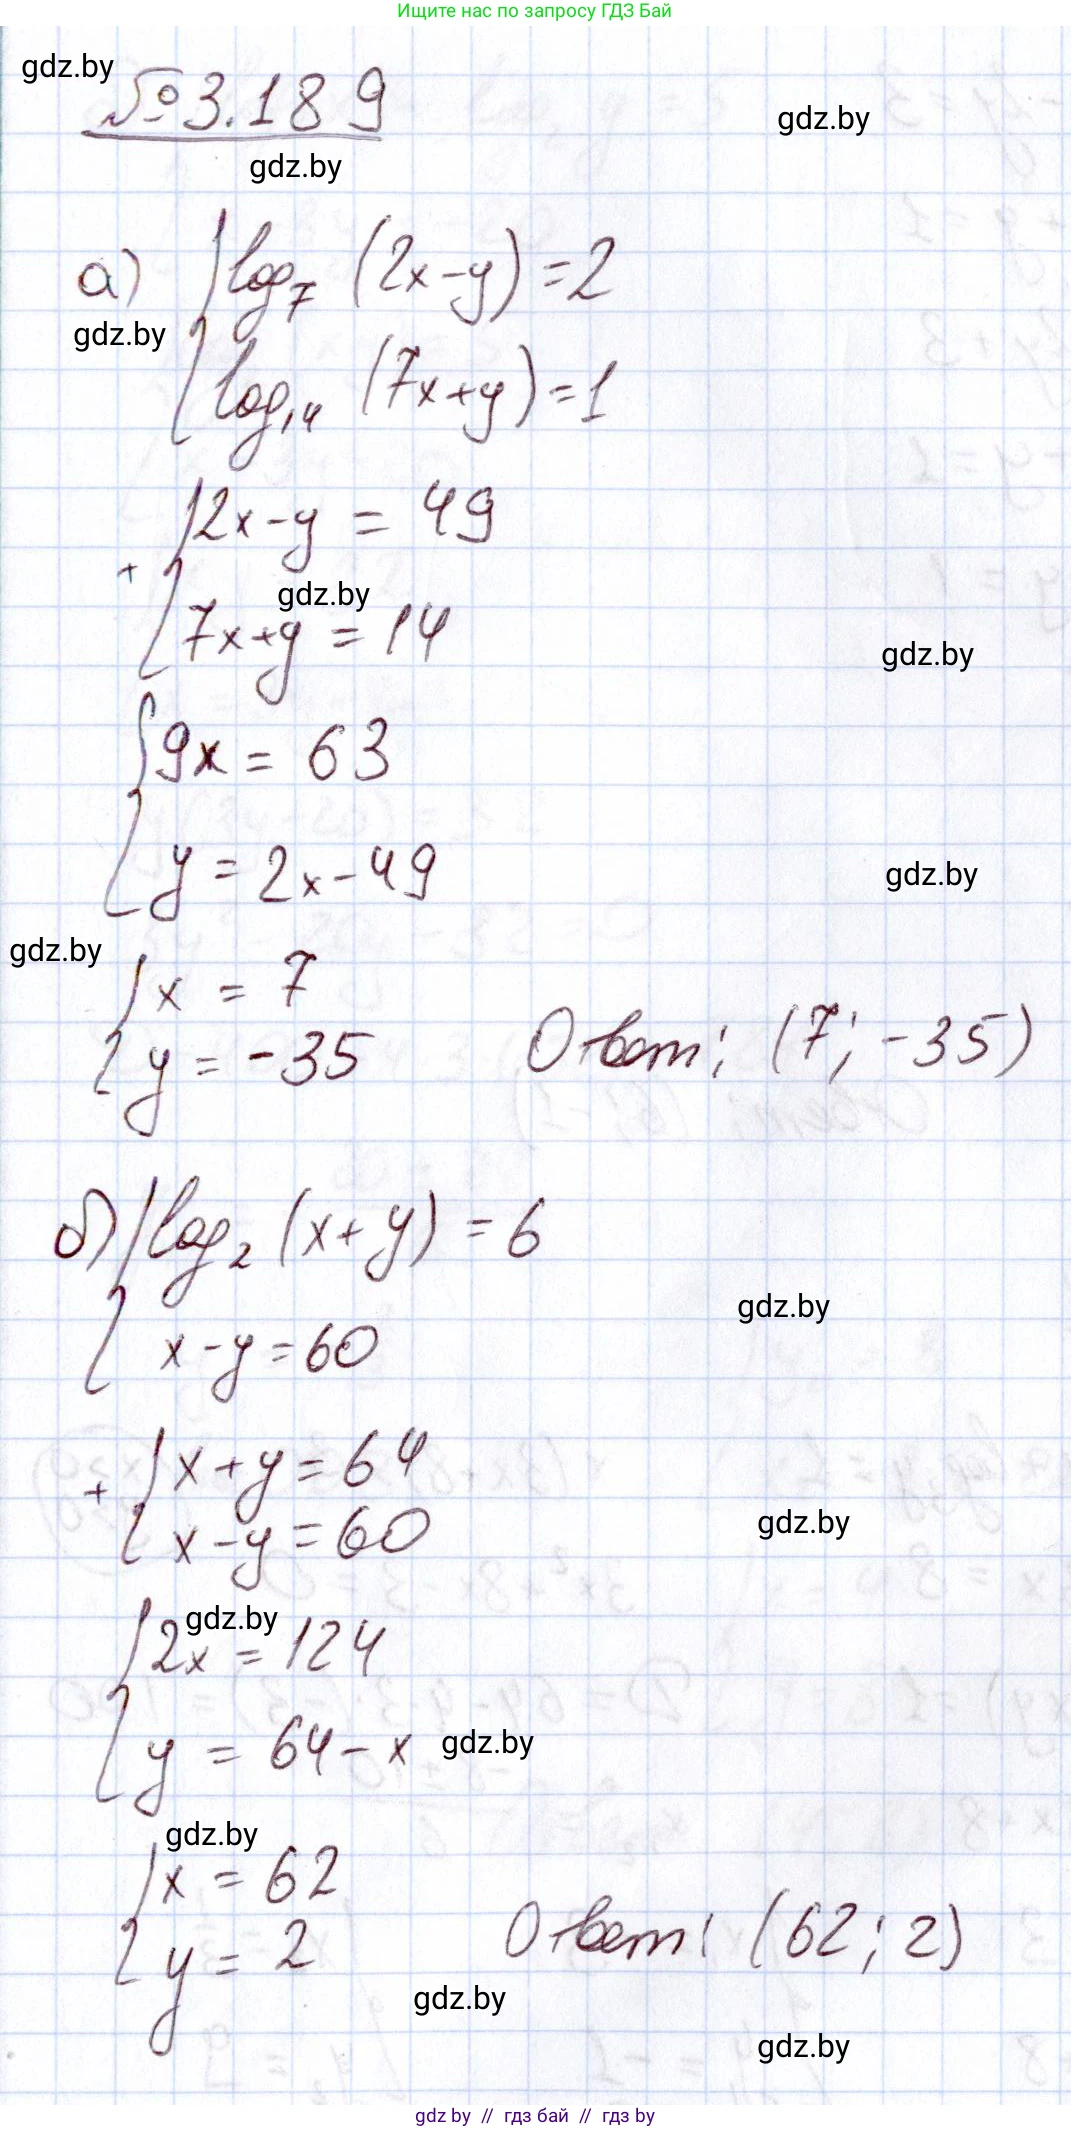 Ищите нас по запросу ГДЗ Бай
gdz.by
№3.189
gdz.by
gdz.by
а) { log₇ (2x-y) = 2
gdz.by
log₁₄ (7x+y) = 1
+ { 2x-y = 49
gdz.by
7x+y = 14
gdz.by
{ 9x = 63
y = 2x-49
gdz.by
gdz.by
{ x = 7
y = -35 Ответ: (7; -35)
б) { log₂ (x+y) = 6
gdz.by
x-y = 60
+ { x+y = 64
gdz.by
x-y = 60
gdz.by
{ 2x = 124
y = 64-x gdz.by
gdz.by
{ x = 62
y = 2 Ответ: (62; 2)
gdz.by
gdz.by
gdz by // гдз бай // гдз by